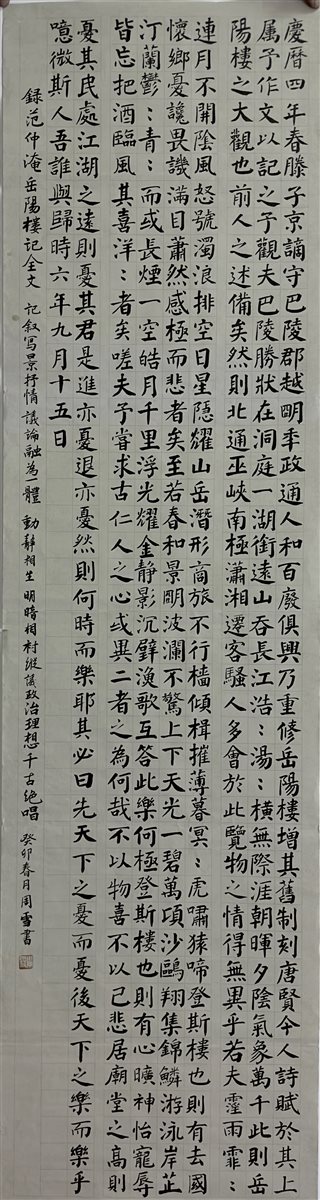 慶曆四年春滕子京謫守巴陵郡越明年政通人和百廢俱興乃重修岳陽樓增其舊制刻唐賢今人詩賦於其上
属予作文以記之予觀夫巴陵勝狀在洞庭一湖銜遠山吞長江浩:湯:橫無際涯朝暉夕陰氣象萬千此則岳
陽樓之大觀也前人之述備矣然則北通巫峽南極瀟湘遷客騷人多會於此覽物之情得無異乎若夫霪雨霏:
連月不開陰風怒號濁浪排空日星隱耀山岳潛形商旅不行檣傾楫摧薄暮冥:虎嘯猿啼登斯樓也則有去國
懷鄉憂讒畏譏滿目蕭然感極而悲者矣至若春和景明波瀾不驚上下天光一碧萬頃沙鷗翔集錦鱗游泳岸芷
汀蘭鬱:青:而或長煙一空皓月千里浮光耀金静影沉璧漁歌互答此樂何極登斯樓也則有心曠神怡寵辱
皆忘把酒臨風其喜洋:者矣嗟夫予嘗求古仁人之心或異二者之為何哉不以物喜不以己悲居廟堂之高則
憂其民處江湖之遠則憂其君是進亦憂退亦憂然則何時而樂耶其必曰先天下之憂而憂後天下之樂而樂乎
噫微斯人吾誰與歸時六年九月十五日
録范仲淹岳陽樓記全文 記叙寫景抒情議論融為一體 動静相生明暗相衬縱議政治理想千古绝唱 癸卯春月周雪書